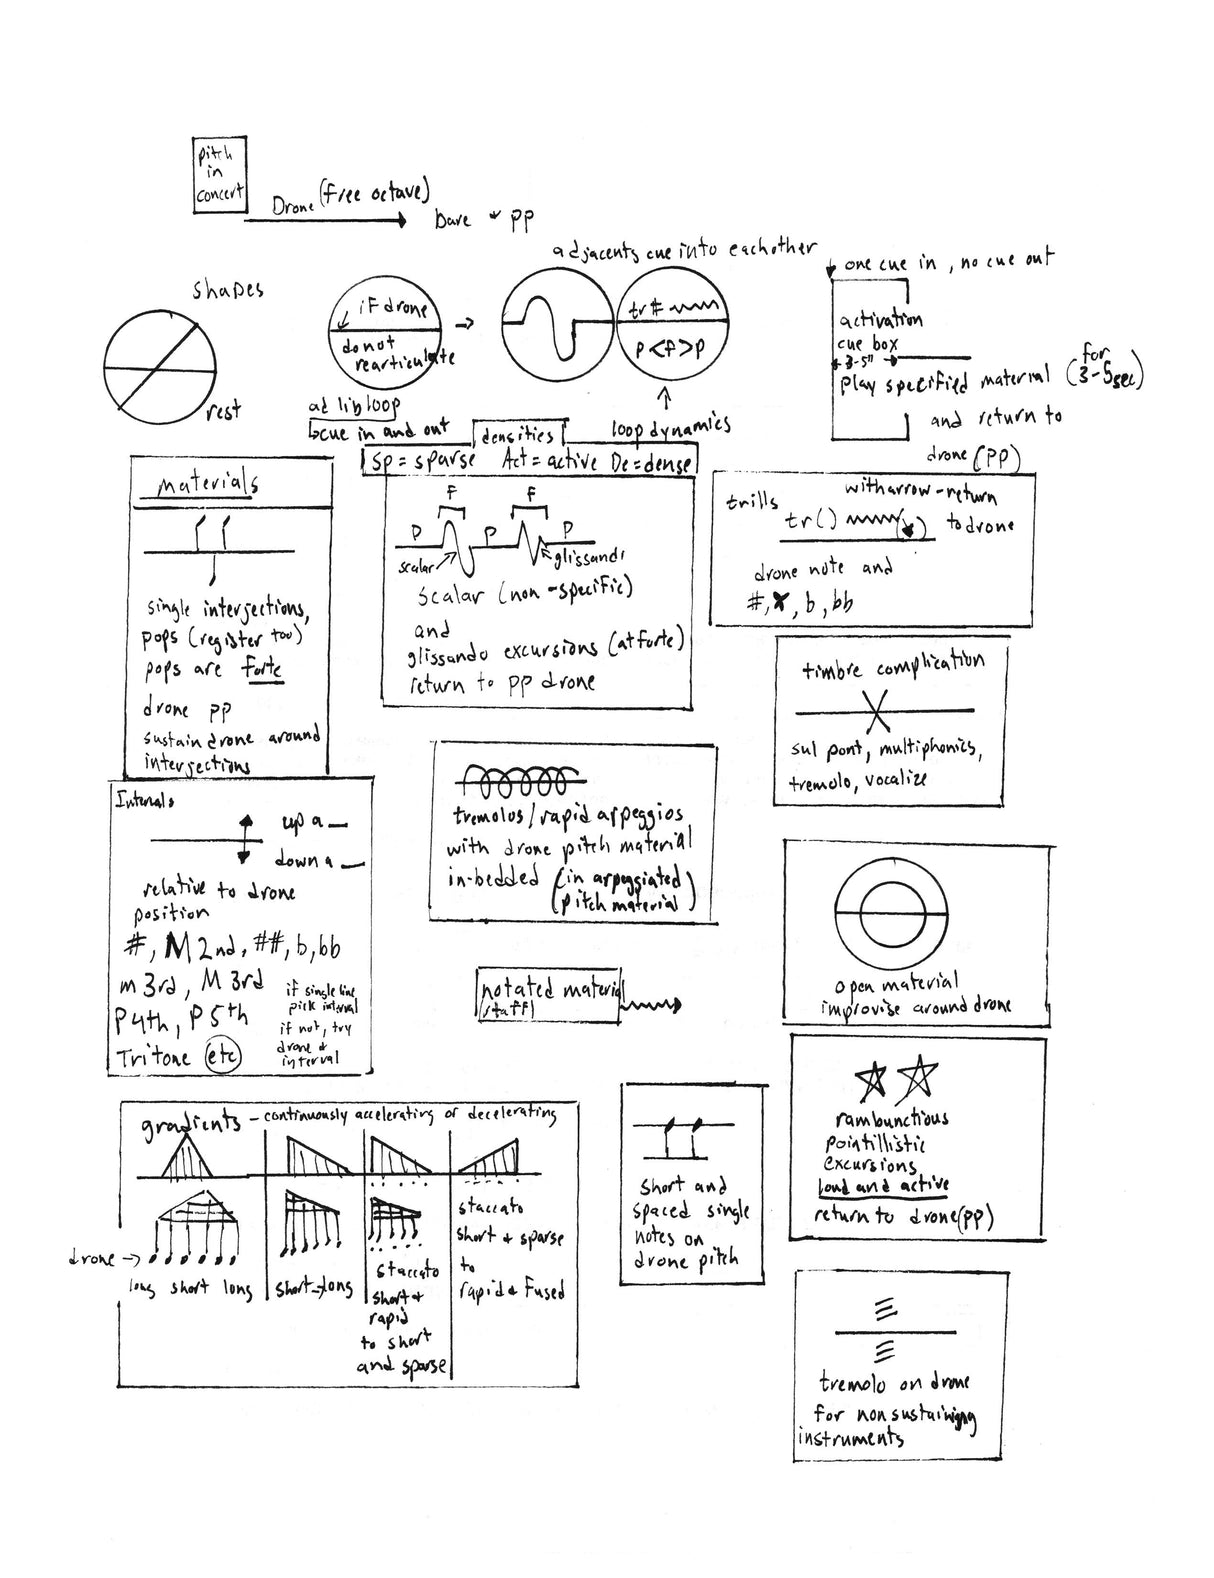 pitch
in
concert
Drone (free octave)
bare + pp
adjacents cue into eachother
one cue in, no cue out
shapes
rest
if drone
do not
rearticulate
ad lib loop
cue in and out
tr# 
p < f > p
loop dynamics
activation
cue box
3-5"
play specified material (for 3-5 sec)
and return to
drone (pp)
densities
Sp = sparse Act = active De = dense
materials
single interjections,
pops (register too)
pops are forte
drone pp
sustain drone around
interjections
F F
P P P
scalar glissandi
scalar (non-specific)
and
glissando excursions (at forte)
return to pp drone
trills with arrow - return
tr( ) to drone
drone note and
#, x, b, bb
timbre complication
sul pont, multiphonics,
tremolo, vocalize
Intervals
up a __
down a __
relative to drone
position
#, M 2nd, ##, b, bb
m 3rd, M 3rd
P 4th, P 5th
Tritone etc
if single line
pick interval
if not, try
drone +
interval
tremolos/rapid arpeggios
with drone pitch material
in-bedded (in arpeggiated
pitch material)
notated material
(staff)
open material
improvise around drone
rambunctious
pointillistic
excursions
loud and active
return to drone (pp)
gradients - continuously accelerating or decelerating
drone →
long short long
short→long
staccato
short +
rapid
to short
and sparse
staccato
short + sparse
to
rapid + fused
short and
spaced single
notes on
drone pitch
tremolo on drone
for nonsustaining
instruments